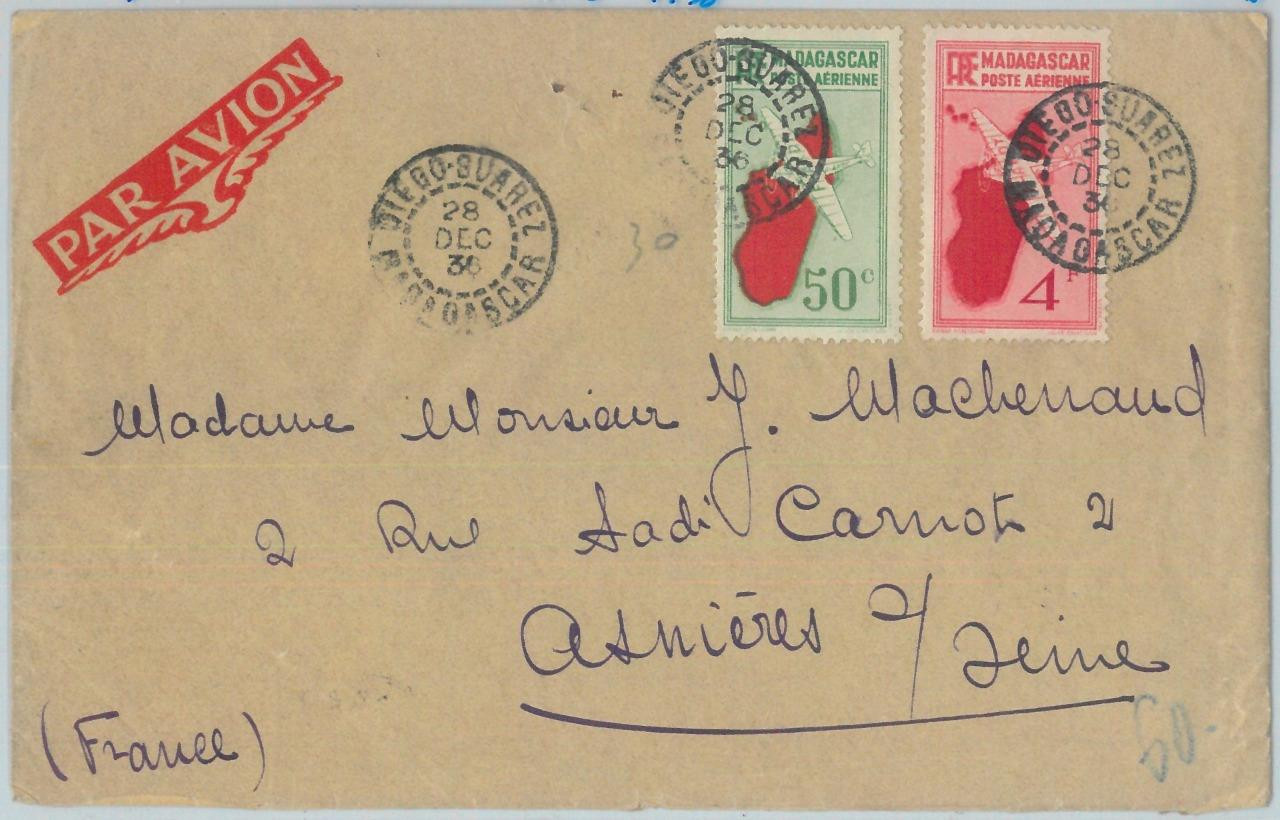 PAR AVION
DIEGO-SUAREZ
28
DEC
36
MADAGASCAR
DIEGO-SUAREZ
28
DEC
36
MADAGASCAR
RF MADAGASCAR
POSTE AÉRIENNE
50c
RF MADAGASCAR
POSTE AÉRIENNE
4F
DIEGO-SUAREZ
28
DEC
36
MADAGASCAR
30
Madame Monsieur J. Machenaud
2 Rue Sadi Carnot 2
Asnières s/ Seine
(France)
50-